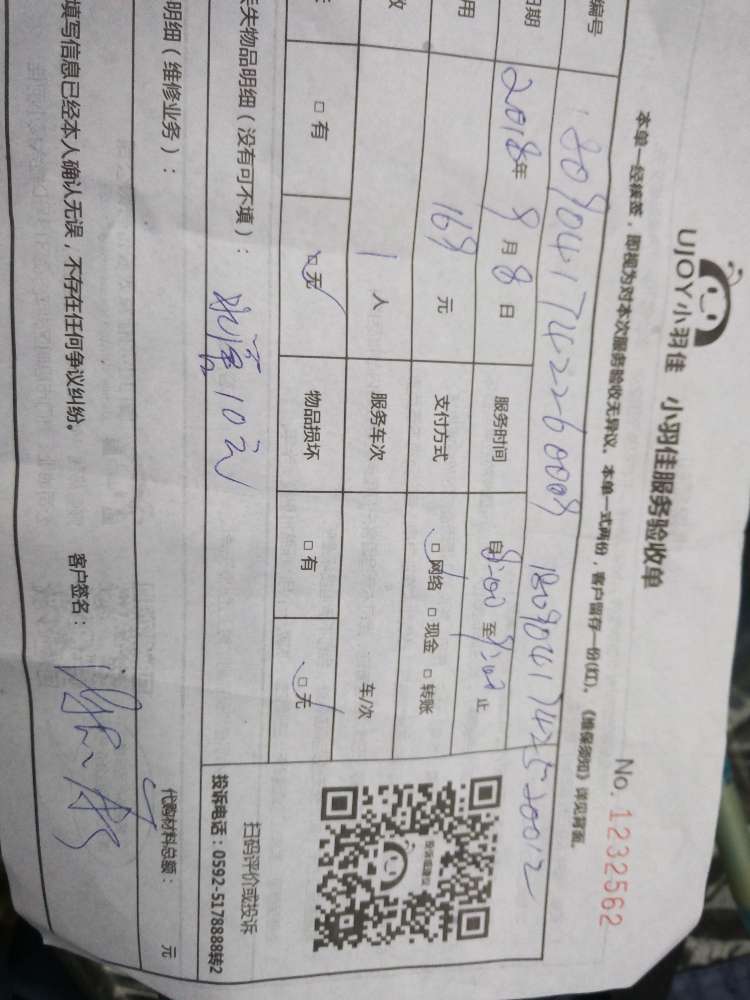 UJOY小羽佳 小羽佳服务验收单
No. 1232562
本单一经核签，即视为对本次服务验收无异议。本单一式两份，客户留存一份(红)。《维保须知》详见背面。
编号 1809041742260009 1809041742520012
日期 2018年9月8日 服务时间 自8:00至9:00止
用 169元 支付方式 □网络 □现金 □转账
数 1人 服务车次 车/次
□有 □无 物品损坏 □有 □无
丢失物品明细（没有可不填）： 10元
扫码评价或投诉
投诉电话：0592-5178888转2
明细（维修业务）： 代购材料总额： 元
填写信息已经本人确认无误，不存在任何争议纠纷。 客户签名：